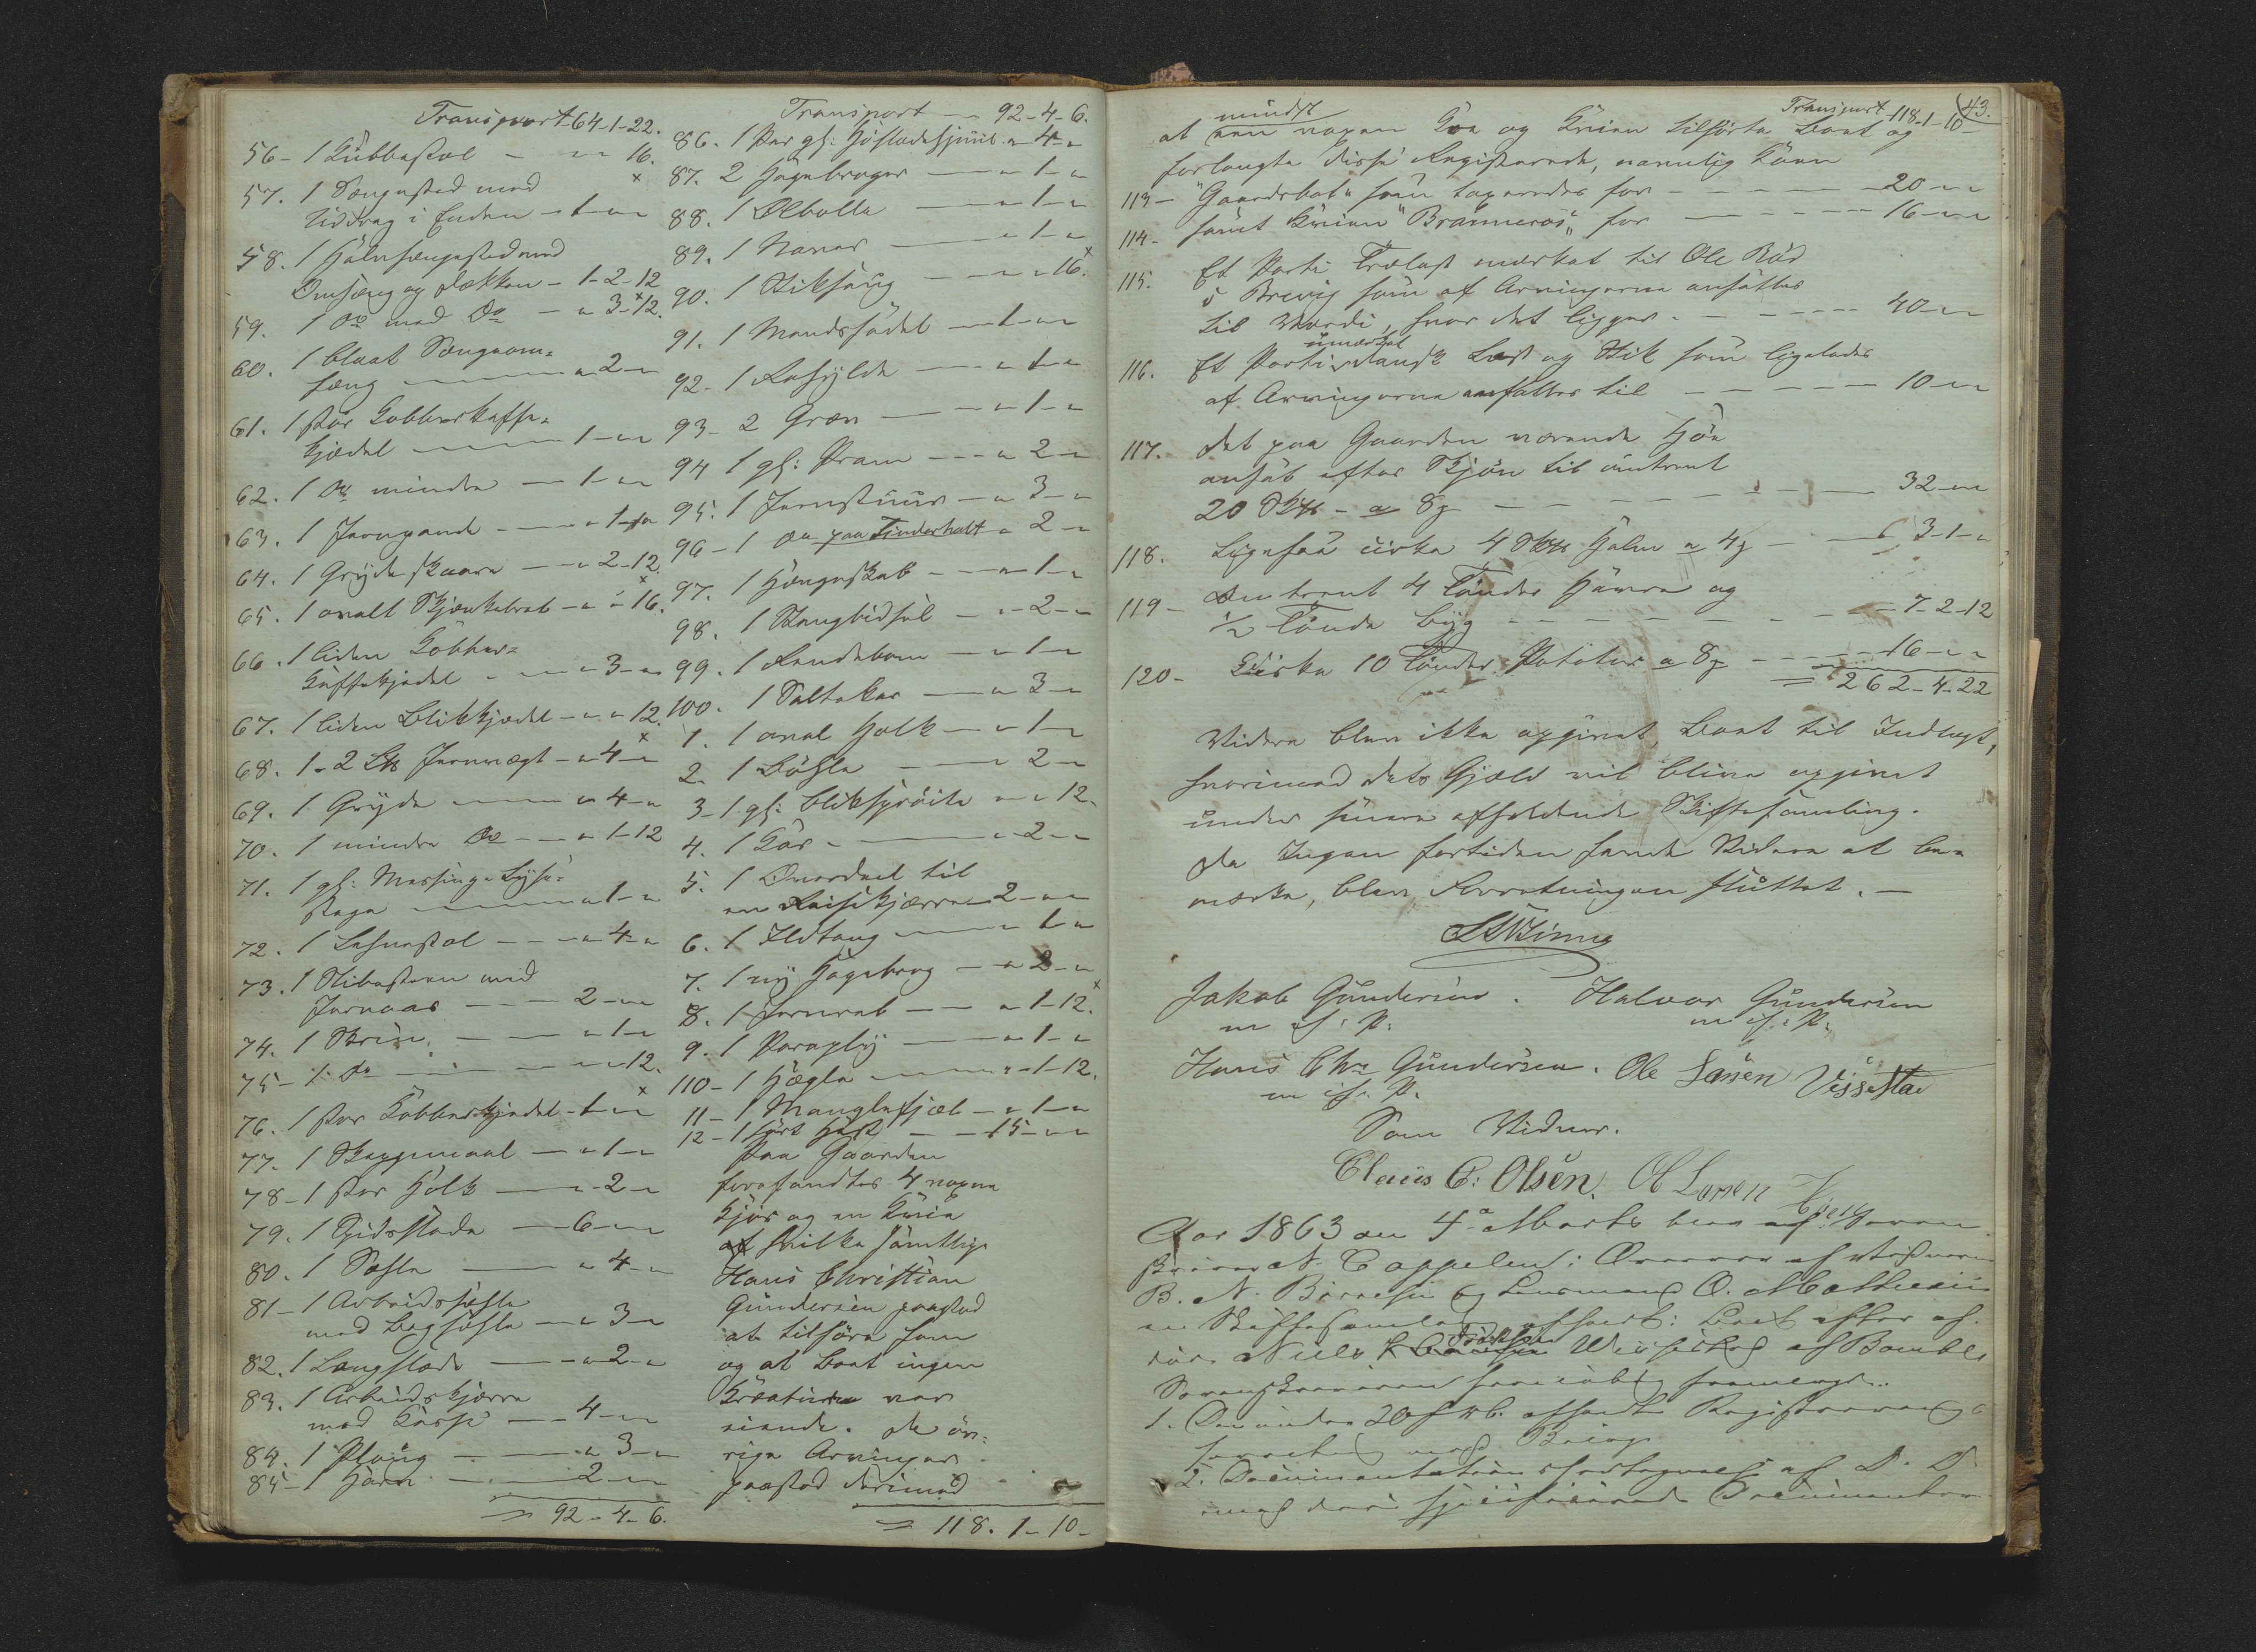 Transport 64-1-22.
56- 1 Kubbestol - - " " 16.
57. 1 Sængested med
Uddrag i Enden - 1 - " "
58. 1 Halvsængested med
Omhæng og Dækken - 1-2-12
59. 1 Do med Do - " 3-12.
60. 1 blaat Sængeom-
hæng " 2 - "
61. 1 stor Kobberkaffe-
kjedel 1 - " "
62. 1 Do mindre - 1 - " "
63. 1 Jernpande
64. 1 Grydeskaare - " 2-12.
65. 1 ovalt Skjænkebret - " " 16.
66. 1 liden Kobber-
Kaffekjedel - " 3 - "
67. 1 liden Blikkjedel - " " 12.
68. 1- 2 Jernvægt - " 4 - "
69. 1 Gryde " 4 - "
70. 1 mindre Do - " 1-12
71. 1 gl: Messing-Lyse-
stage " 1 - "
72. 1 " 4 - "
73. 1 Slibesteen med
Jernaas - 2 - " "
74. 1 Skrin - " 1 - "
75- 1 Do " " 12.
76. 1 stor Kobberkjedel - 1 - " "
77. 1 Skjeppemaal - " 1 - "
78- 1 stor Holk - " 2 - "
79. 1 - 6 - " "
80. 1 " 4 - "
81- 1 Arbeidssæle
med - " 3 - "
82. 1 Langslæde - " 2 - "
83. 1 Arbeidskjærre
med Kasse - 4 - " "
84. 1 Ploug " 3 - "
85- 1 Harv 2 - " "
= 92-4-6.
Transport - 92-4-6.
86. 1 Par gl: " 4 - "
87. 2 Høgebroger - " 1 - "
88. 1 Ølbolle " 1 - "
89. 1 Naver " 1 - "
90. 1 Stiksaug " " 16.
91. 1 Mandssadel - 1 - " "
92- 1 " 1 - "
93- 2 Grev - " 1 - "
94 1 gl: Pram - " 2 - "
95. 1 Jernstaur - " 3 - "
96- 1 Do paa Tinderholt " 2 - "
97. 1 Hængeskab - " 1 - "
98. 1 Stangbidsel - " 2 - "
99. 1 - " 1 - "
100. 1 Saltekar - " 3 - "
1. 1 oval Holk - " 1 - "
2. 1 Bøsse " 2 - "
3- 1 gl: Bliksprøite " " 12.
4. 1 Kar - " 2 - "
5. 1 Overdeel til
en Reisekjærre 2 - " "
6. 1 Ildtang " 1 - "
7. 1 ny Høgebrog - " 2 - "
8. 1 " 1-12.
9. 1 Paraply - " 1 - "
110- 1 Hægle " 1-12.
11- 1 Manglefjæl - " 1 - "
12- 1 sort Hest - 15 - " "
Paa Gaarden
forefandtes 4 voxne
Kjør og en Kvie
af hvilke samtlige
Hans Christian
Gundersen paastod
at tilhøre ham
og at Boet ingen
Kreature var
eiende. De øv-
rige Arvinger
paastod derimod
= 118. 1-10-
Transport 118-1-10 43.
mindst
at een voxen Koe og Kvien tilhørte Boet og
forlangte disse Registrerede, nemlig Koen
113- "Gaardebot" som taxeredes for - 20 - "
114- samt Kvien "Branneros" for - 16 - " "
115. Et Parti Trælast mærket til Ole Rød
i Brevig som af Arvingerne ansættes
til Værdi, hvor det ligger - 40 - "
umærket
116. Et Parti dansk Last og Stik som ligeledes
af Arvingerne ansættes til - 10 - "
117. Det paa Gaarden værende Høe
ansat efter Skjøn til omtrent
20 a 8 - 32 - "
118. Ligesaa cirka 4 Halm a 4 - 3-1 - "
119- Omtrent 4 Tønder Havre og
½ Tønde Byg - 7-2-12
120- Cirka 10 Tønder Poteter a 8 - 16 - "
= 262-4-22
Videre blev ikke opgivet Boet til Indtægt,
hvorimod dets Gjæld vil blive opgivet
under senere afholdende Skiftesamling.
Da Ingen fortiden havde Videre at be-
mærke, blev Forretningen sluttet. -
Jakob Gundersen. Halvor Gundersen
m if: P: m if: P:
Hans Chr. Gundersen. Ole Larsen Vissestad
m if: P.
Som Vidner.
Claus C: Olsen. Ol Larsen
Aar 1863 den 4de Marts blev af Soren-
skriver N. Cappelen i Overvær af
B. N. og Lensmand O. Mathiesen
en Skiftesamling afholdt i Boet efter af-
døde Niels Vissestad af Bamble
Sorenskriveren fremlagde
1. Den under 20 f. M. afholdte Registrerings
2.